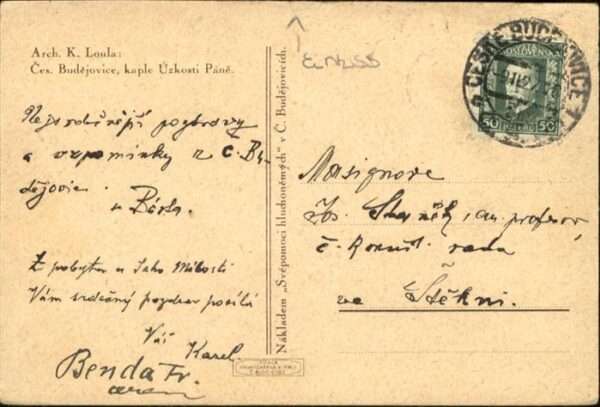 Arch. K. Loula:
Čes. Budějovice, kaple Úzkosti Páně.
Nejsrdečnější pozdravy
a vzpomínky z Č. Bu-
dějovic
Z pobytu u Jeho Milosti
Vám srdečný pozdrav posílá
Váš Karel
Benda Fr.
Nákladem „Svépomoci hluchoněmých" v Č. Budějovicích.
ČESKÉ BUDĚJOVICE 1
50 50
Monsignore
Staněk,
professor
č. konsist. rada
ve Štěkni.